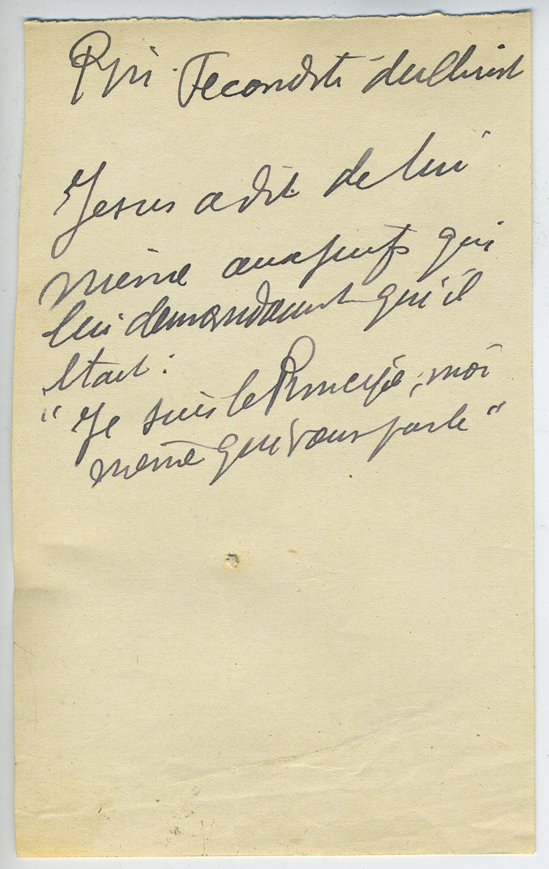 Fecondité du Christ
Jesus a dit de lui
même aux juifs qui
lui demandaient qu'il
était :
" Je suis le Principe, moi
même qui vous parle "